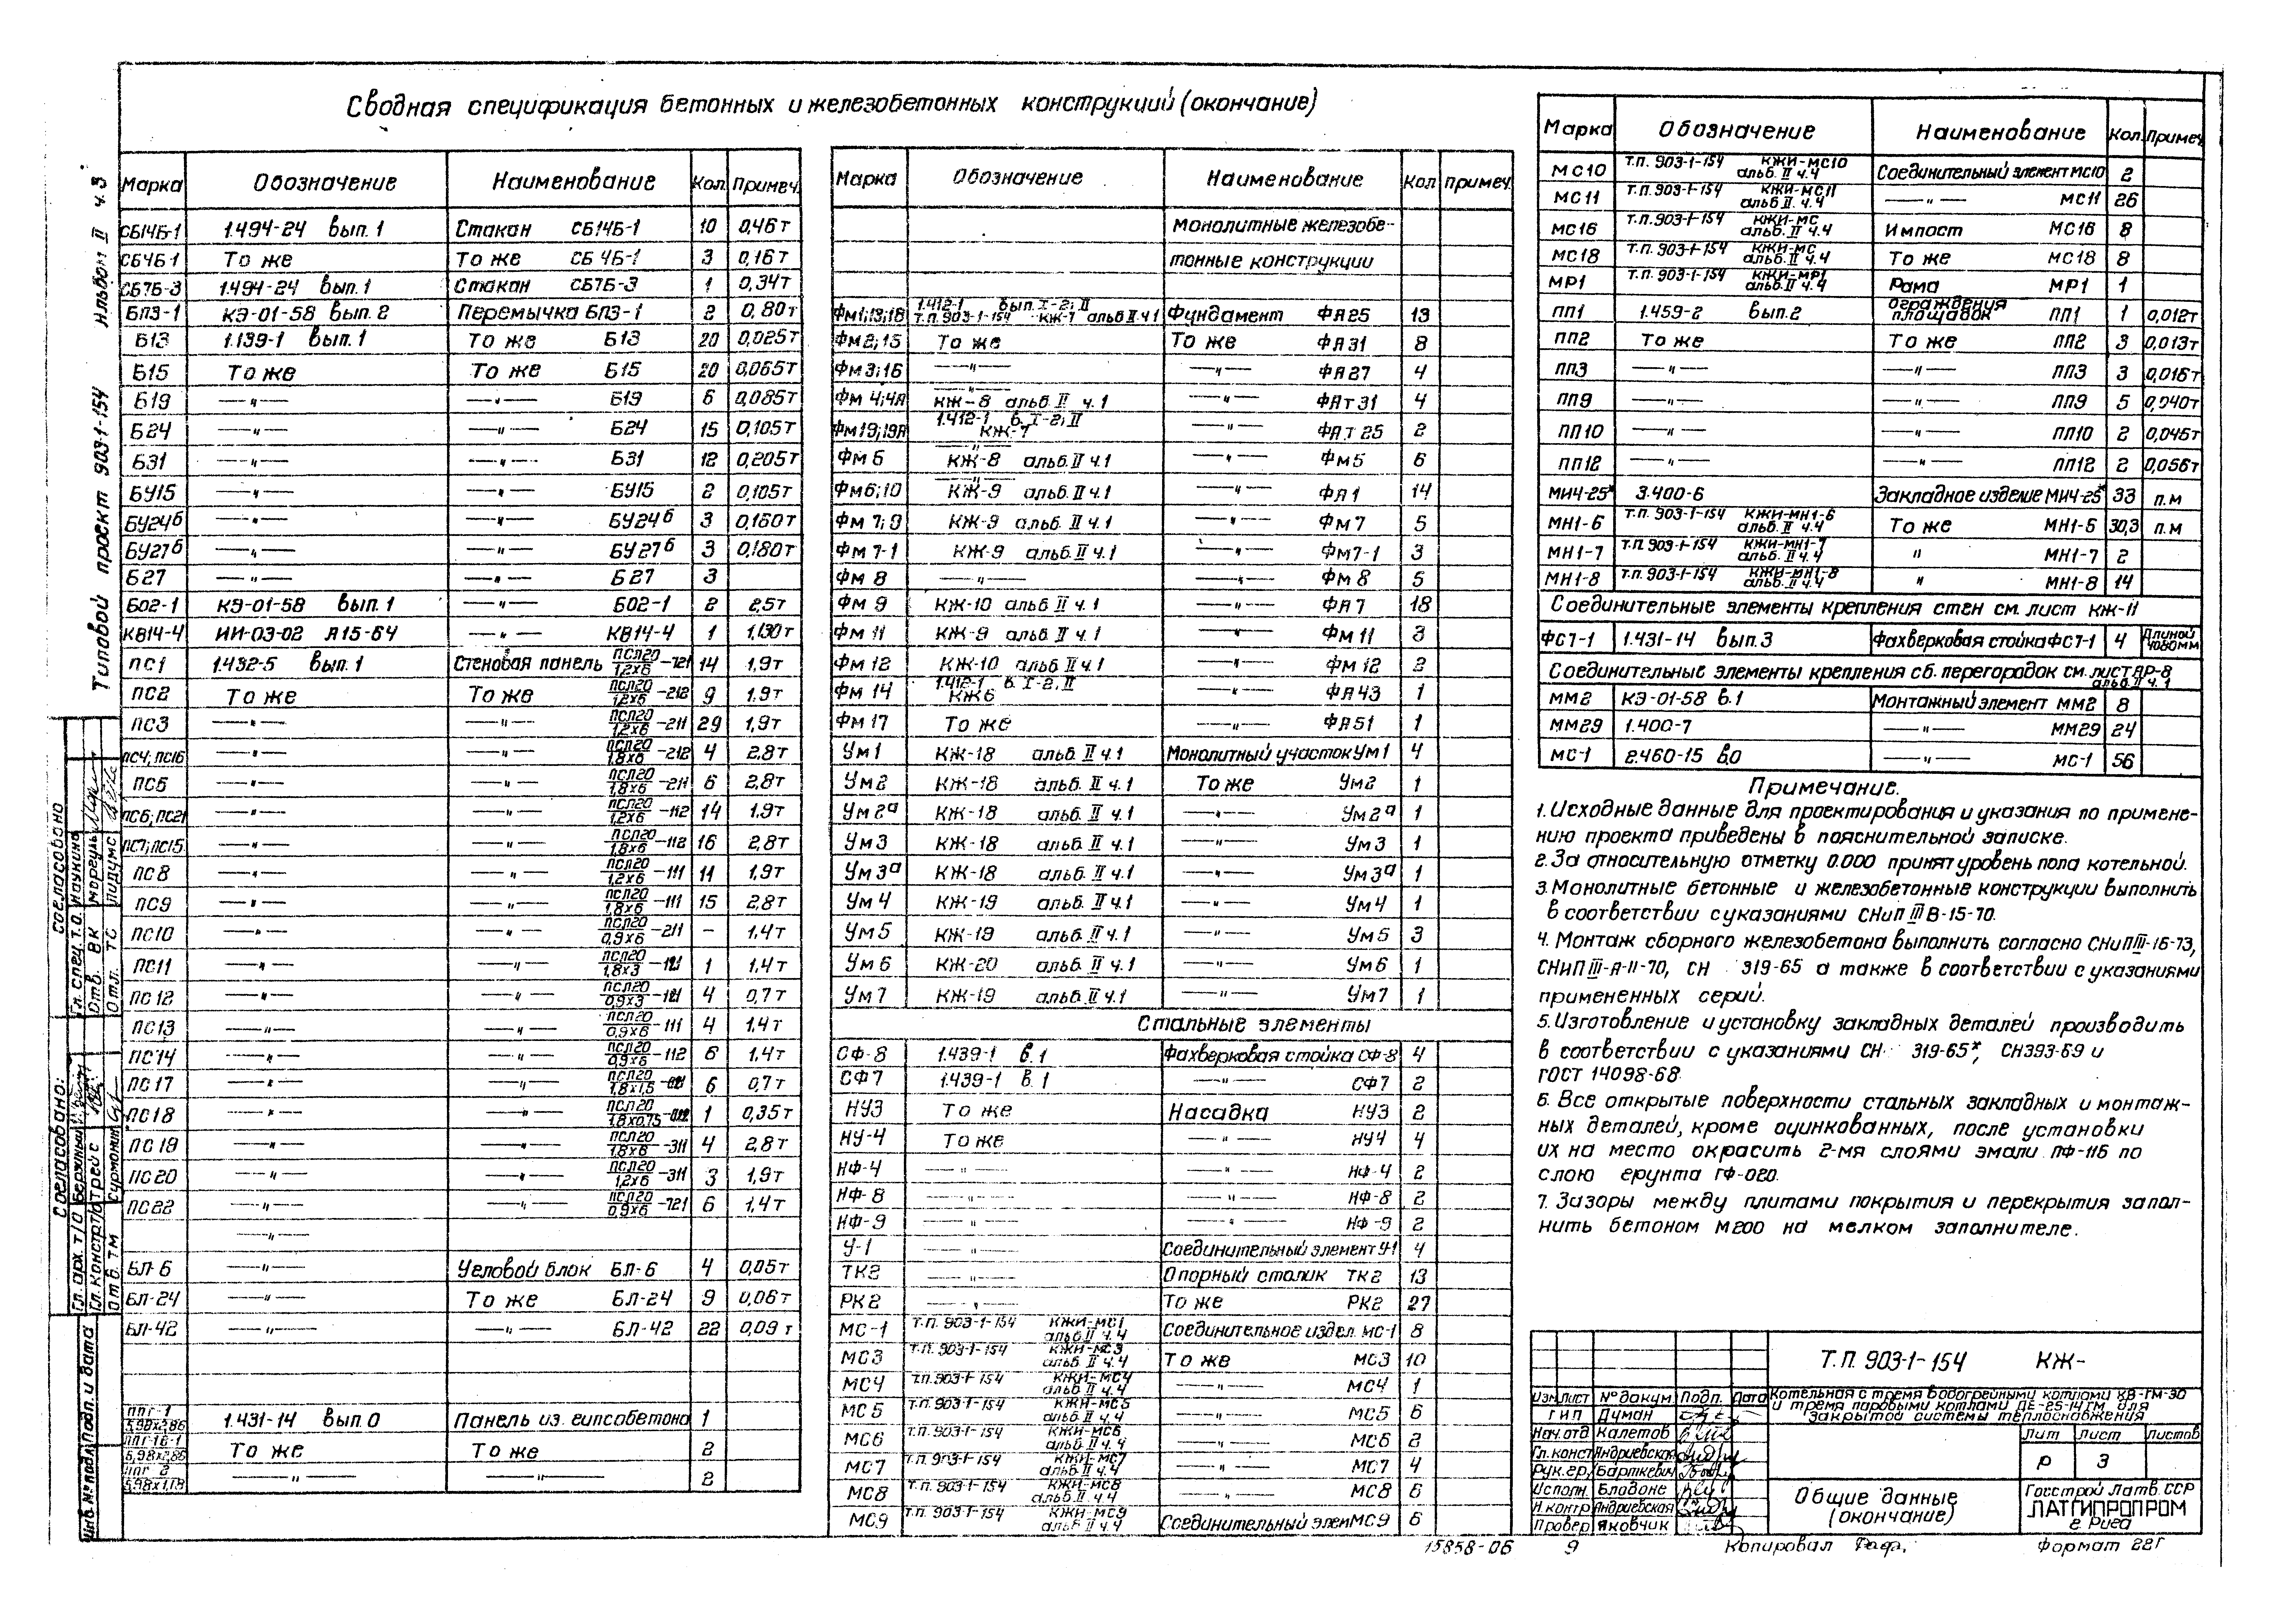 Сводная спецификация бетонных и железобетонных конструкций (окончание)
Типовой проект 903-1-154 Альбом II ч.3
Марка Обозначение Наименование Кол. Примеч.
СБ14Б-1 1.494-24 вып.1 Стакан СБ14Б-1 10 0,46т
СБ4Б-1 То же То же СБ4Б-1 3 0,16т
СБ7Б-3 1.494-24 вып.1 Стакан СБ7Б-3 1 0,34т
БПЗ-1 КЭ-01-58 вып.2 Перемычка БПЗ-1 2 0,80т
Б13 1.139-1 вып.1 То же Б13 20 0,025т
Б15 То же То же Б15 20 0,065т
Б19 —"— —"— Б19 6 0,085т
Б24 —"— —"— Б24 15 0,105т
Б31 —"— —"— Б31 12 0,205т
БУ15 —"— —"— БУ15 2 0,105т
БУ24б —"— —"— БУ24б 3 0,160т
БУ27б —"— —"— БУ27б 3 0,180т
Б27 —"— —"— Б27 3
Б02-1 КЭ-01-58 вып.1 —"— Б02-1 2 2,5т
КВ14-4 ИИ-03-02 А15-64 —"— КВ14-4 1 1,130т
ПС1 1.432-5 вып.1 Стеновая панель ПСЛ20/1,2х6 -721 14 1,9т
ПС2 То же То же ПСЛ20/1,2х6 -212 9 1.9т
ПС3 —"— —"— ПСЛ20/1,2х6 -211 29 1,9т
ПС4; ПС16 —"— —"— ПСЛ20/1,8х6 -212 4 2.8т
ПС5 —"— —"— ПСЛ20/1,8х6 -211 6 2,8т
ПС6; ПС21 —"— —"— ПСЛ20/1,2х6 -112 14 1.9т
ПС7; ПС15 —"— —"— ПСЛ20/1,8х6 -112 16 2,8т
ПС8 —"— —"— ПСЛ20/1,2х6 -111 11 1.9т
ПС9 —"— —"— ПСЛ20/1,8х6 -111 15 2,8т
ПС10 —"— —"— ПСЛ20/0,9х6 -211 – 1.4т
ПС11 —"— —"— ПСЛ20/1,8х3 -121 1 1,4т
ПС12 —"— —"— ПСЛ20/0,9х3 -121 4 0,7т
ПС13 —"— —"— ПСЛ20/0,9х6 -111 4 1.4т
ПС14 —"— —"— ПСЛ20/0,9х6 -112 6 1.4т
ПС17 —"— —"— ПСЛ20/1,8х1,5 6 0,7т
ПС18 —"— —"— ПСЛ20/1,8х0,75 1 0,35т
ПС19 —"— —"— ПСЛ20/1,8х6 -311 4 2,8т
ПС20 —"— —"— ПСЛ20/1,2х6 -311 3 1,9т
ПС22 —"— —"— ПСЛ20/0,9х6 -721 6 1,4т
—"—
БЛ-6 —"— Угловой блок БЛ-6 4 0,05т
БЛ-24 —"— То же БЛ-24 9 0,06т
БЛ-42 —"— —"— БЛ-42 22 0,09т
ППГ-1 5,98х2,86 1.431-14 вып.0 Панель из гипсобетона 1
ППГ-1б-1 5,98х2,86 То же То же 2
ППГ 2 5,98х1,18 —"— —"— 2
Марка Обозначение Наименование Кол Примеч.
Монолитные железобе-
тонные конструкции
Фм1;13;18 1.412-1 вып.I-2; II Т.П. 903-1-154 КЖ-7 альб II ч.1 Фундамент ФА25 13
Фм2;15 То же То же ФА31 8
Фм3;16 —"— —"— ФА27 4
Фм4;4А —"— КЖ-8 альб II ч.1 —"— ФАТ31 4
Фм19;19А 1.412-1 в. I-2; II КЖ-7 —"— ФАТ25 2
Фм 5 —"— КЖ-8 альб. II ч.1 —"— Фм5 6
Фм6;10 —"— КЖ-9 альб. II ч.1 —"— ФА1 14
Фм 7;9 КЖ-9 альб. II ч.1 —"— Фм7 5
Фм 7-1 КЖ-9 альб. II ч.1 —"— Фм7-1 3
Фм 8 —"— —"— Фм 8 5
Фм 9 КЖ-10 альб II ч.1 —"— ФА7 18
Фм 11 КЖ-9 альб II ч.1 —"— Фм 11 3
Фм 12 КЖ-10 альб II ч.1 —"— Фм 12 2
Фм 14 1.412-1 в. I-2; II КЖ6 —"— ФА43 1
Фм 17 То же —"— ФА51 1
Ум1 КЖ-18 альб. II ч.1 Монолитный участок Ум1 4
Ум2 КЖ-18 альб. II ч.1 То же Ум2 1
Ум2а КЖ-18 альб. II ч.1 —"— Ум2а 1
Ум3 КЖ-18 альб. II ч.1 —"— Ум3 1
Ум3а КЖ-18 альб. II ч.1 —"— Ум3а 1
Ум4 КЖ-19 альб. II ч.1 —"— Ум4 1
Ум5 КЖ-19 альб. II ч.1 —"— Ум5 3
Ум6 КЖ-20 альб. II ч.1 —"— Ум6 1
Ум7 КЖ-19 альб. II ч.1 —"— Ум7 1
Стальные элементы
СФ-8 1.439-1 в.1 Фахверковая стойка СФ-8 4
СФ7 1.439-1 в.1 —"— СФ7 2
НУ3 То же Насадка НУ3 2
НУ-4 То же —"— НУ4 4
НФ-4 —"— —"— НФ-4 2
НФ-8 —"— —"— НФ-8 2
НФ-9 —"— —"— НФ-9 2
У-1 —"— Соединительный элемент У-1 4
ТК2 —"— Опорный столик ТК2 13
РК2 —"— То же РК2 27
МС-1 Т.П. 903-1-154 КЖИ-МС1 альб II ч.4 Соединительное издел. МС-1 8
МС3 Т.П. 903-1-154 КЖИ-МС3 альб II ч.4 То же МС3 10
МС4 Т.П. 903-1-154 КЖИ-МС4 альб II ч.4 —"— МС4 1
МС5 Т.П. 903-1-154 КЖИ-МС5 альб II ч.4 —"— МС5 6
МС6 Т.П. 903-1-154 КЖИ-МС6 альб II ч.4 —"— МС6 2
МС7 Т.П. 903-1-154 КЖИ-МС7 альб II ч.4 —"— МС7 4
МС8 Т.П. 903-1-154 КЖИ-МС8 альб. II ч.4 —"— МС8 6
МС9 Т.П. 903-1-154 КЖИ-МС9 альб II ч.4 Соединительный элем МС9 6
Марка Обозначение Наименование Кол. Примеч
МС10 Т.П. 903-1-154 КЖИ-МС10 альб. II ч.4 Соединительный элемент МС10 2
МС11 Т.П. 903-1-154 КЖИ-МС11 альб II. ч.4 —"— МС11 26
МС16 Т.П. 903-1-154 КЖИ-МС альб. II ч.4 Импост МС16 8
МС18 Т.П. 903-1-154 КЖИ-МС альб. II ч.4 То же МС18 8
МР1 Т.П. 903-1-154 КЖИ-МР1 альб. II ч.4 Рама МР1 1
ПП1 1.459-2 вып.2 Ограждения площадок ПП1 1 0,012т
ПП2 То же То же ПП2 3 0,013т
ПП3 —"— —"— ПП3 3 0,016т
ПП9 —"— —"— ПП9 5 0,040т
ПП10 —"— —"— ПП10 2 0,045т
ПП12 —"— —"— ПП12 2 0,056т
МИ4-25* 3.400-6 Закладное изделие МИ4-25* 33 п.м
МН1-6 Т.П. 903-1-154 КЖИ-МН1-6 альб. II ч.4 То же МН1-6 30,3 п.м
МН1-7 Т.П. 903-1-154 КЖИ-МН1-7 альб. II ч.4 " МН1-7 2
МН1-8 Т.П. 903-1-154 КЖИ-МН1-8 альб. II ч.4 " МН1-8 14
Соединительные элементы крепления стен см. лист КЖ-11
ФС7-1 1.431-14 вып.3 Фахверковая стойка ФС7-1 4 Длиной 4080мм
Соединительные элементы крепления сб. перегородок см. лист АР-8 альб II ч.1
ММ2 КЭ-01-58 в.1 Монтажный элемент ММ2 8
ММ29 1.400-7 —"— ММ29 24
МС-1 2.460-15 в.0 —"— МС-1 56
Примечание.
1. Исходные данные для проектирования и указания по примене-
нию проекта приведены в пояснительной записке.
2. За относительную отметку 0.000 принят уровень пола котельной.
3. Монолитные бетонные и железобетонные конструкции выполнить
в соответствии с указаниями СНиП III В-15-70.
4. Монтаж сборного железобетона выполнить согласно СНиП III-16-73,
СНиП III-А-11-70, СН 319-65 а также в соответствии с указаниями
примененных серий.
5. Изготовление и установку закладных деталей производить
в соответствии с указаниями СН 319-65*, СН393-69 и
ГОСТ 14098-68.
6. Все открытые поверхности стальных закладных и монтаж-
ных деталей, кроме оцинкованных, после установки
их на место окрасить 2-мя слоями эмали ПФ-116 по
слою грунта ГФ-020.
7. Зазоры между плитами покрытия и перекрытия запол-
нить бетоном М200 на мелком заполнителе.
Т.П. 903-1-154 КЖ-
Котельная с тремя водогрейными котлами КВ-ГМ-30
и тремя паровыми котлами ДЕ-25-14ГМ для
закрытой системы теплоснабжения
Изм. Лист № докум. Подп. Дата
ГИП Думан
Нач.отд Калетов
Гл. конст Андриевская
Рук.гр. Барткевич
Исполн. Бладоне
Н.контр Андриевская
Провер Яковчик
Лит Лист Листов
Р 3
Общие данные
(окончание)
Госстрой Латв. ССР
ЛАТГИПРОПРОМ
г. Рига
Согласовано
Гл. спец. Т.О. Наукинв
Отв. ВК Моргуль
Отл. ТС Пидумс
Согласовано:
Гл. арх. Т/О Бержиньш
Гл. констр. Т/О Трейс
Отв. ТМ Сурмонин
Инв. № подл. Подп. и дата
15858-06 9 Копировал Формат 22Г